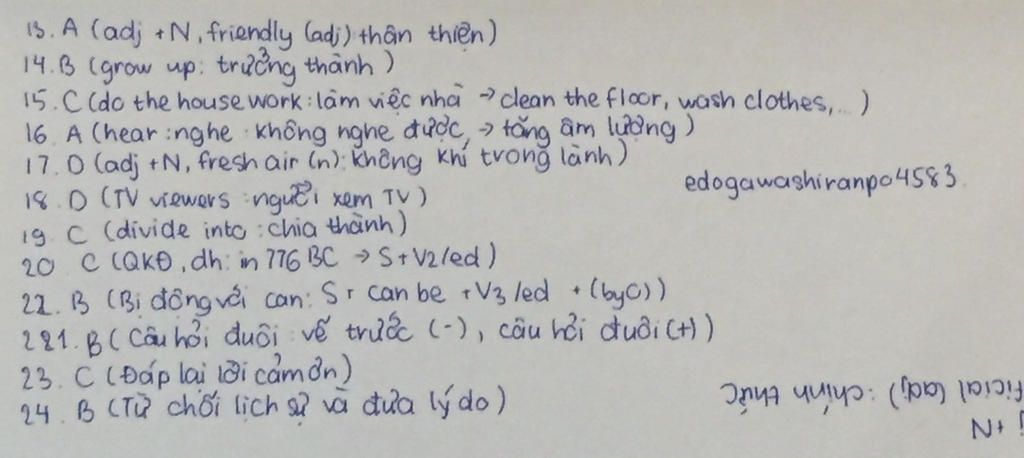 13. A (adj + N, friendly (adj) thân thiện)
14. B (grow up: trưởng thành)
15. C (do the housework: làm việc nhà → clean the floor, wash clothes,...)
16. A (hear: nghe không nghe được, → tăng âm lượng)
17. D (adj + N, fresh air (n): không khí trong lành)
edogawashiranpo4583.
18. D (TV viewers: người xem TV)
19. C (divide into: chia thành)
20 C (QKĐ, dh: in 776 BC → S + V2/ed)
22. B (Bị động với can: S + can be + V3/ed + (by O))
221. B (Câu hỏi đuôi vế trước (-), câu hỏi đuôi (+))
23. C (Đáp lại lời cảm ơn)
24. B (Từ chối lịch sự và đưa lý do)
ficial (adj): chính thức
j + N